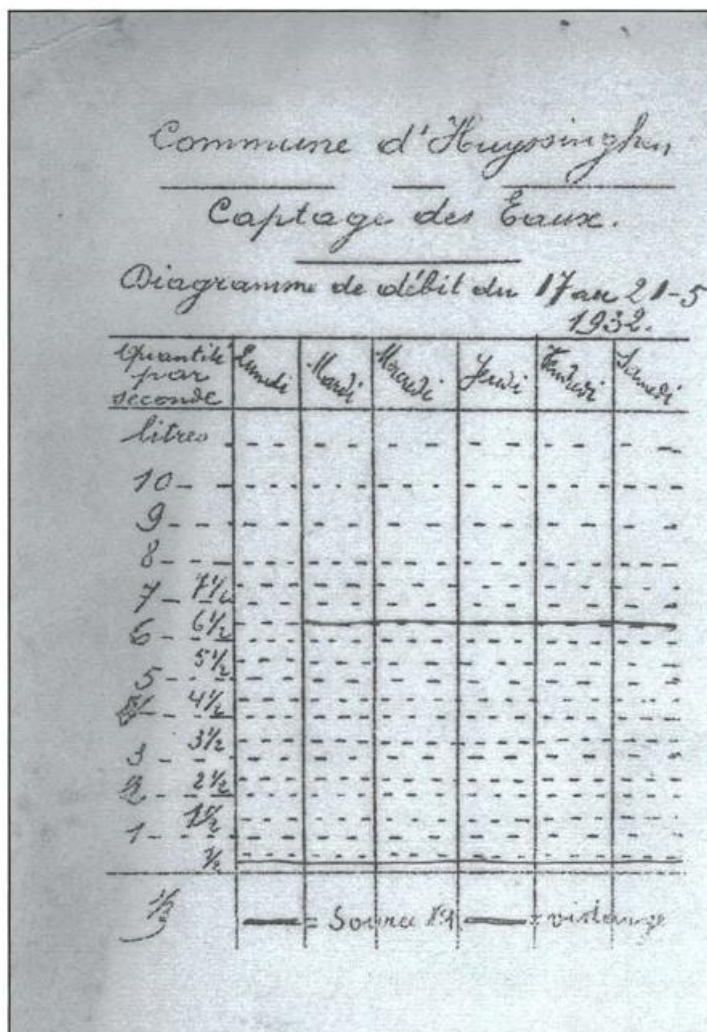 Commune d'Huyssinghen
Captage des Eaux.
Diagramme de débit du 17 au 21-5
1932.
Quantité par seconde Lundi Mardi Mercredi Jeudi Vendredi Samedi
litres
10
9
8
7 7 1/2
6 6 1/2
5 5 1/2
4 1/2
3 3 1/2
2 2 1/2
1 1 1/2
1/2
= Source N°1 = vidange